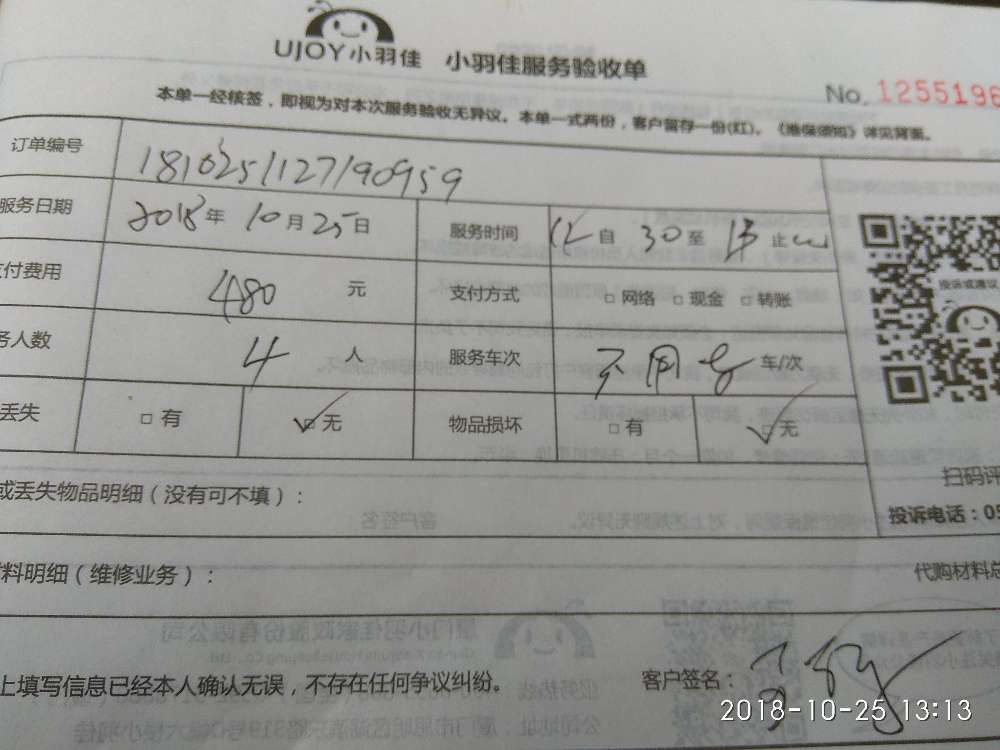 UJOY小羽佳 小羽佳服务验收单
No. 1255196
本单一经核签，即视为对本次服务验收无异议。本单一式两份，客户留存一份(红)。《维保须知》详见背面。
订单编号 1810251127190959
服务日期 2018年10月25日 服务时间 12自30至13止
付费用 480元 支付方式 □网络 □现金 □转账
务人数 4人 服务车次 不用车 车/次
丢失 □有 ✓□无 物品损坏 □有 ✓□无
投诉或建议
扫码评
或丢失物品明细（没有可不填）：
投诉电话：05
料明细（维修业务）： 代购材料总
上填写信息已经本人确认无误，不存在任何争议纠纷。 客户签名：
2018-10-25 13:13